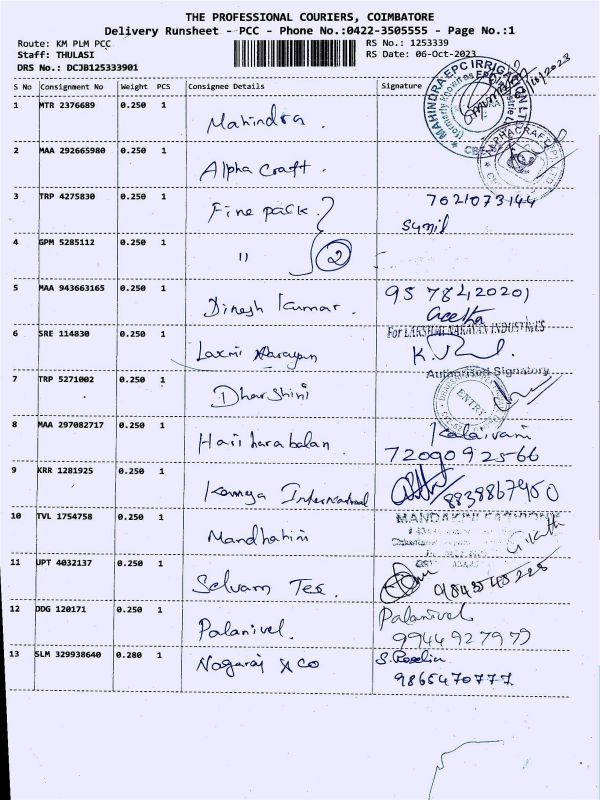 THE PROFESSIONAL COURIERS, COIMBATORE
Delivery Runsheet - PCC - Phone No.:0422-3505555 - Page No.:1
Route: KM PLM PCC RS No.: 1253339
Staff: THULASI RS Date: 06-Oct-2023
DRS No.: DCJB125333901
S No Consignment No Weight PCS Consignee Details Signature
1 MTR 2376689 0.250 1 Mahindra.
MAHINDRA EPC IRRIGATION LTD
2 MAA 292665980 0.250 1 Alpha Craft.
3 TRP 4275830 0.250 1 Fine pack 7021073144
Sunil
4 GPM 5285112 0.250 1 " 2
5 MAA 943663165 0.250 1 Dinesh Kumar. 95 784,20201
Geetha
6 SRE 114830 0.250 1 Laxmi Narayan For LAKSHMI NARAYAN INDUSTRIES
Authorised Signatory
7 TRP 5271002 0.250 1 Dharshini ENTRY
8 MAA 297082717 0.250 1 Hariharabalan Kalaivani
7209092566
9 KRR 1281925 0.250 1 Kamya International 8838867950
10 TVL 1754758 0.250 1 Mandhahini
11 UPT 4032137 0.250 1 Selvam Tex. 9843545228
12 DDG 120171 0.250 1 Palanivel. Palanivel
9944927979
13 SLM 329938640 0.280 1 Nagaraj & Co S. Roselin
9865470777